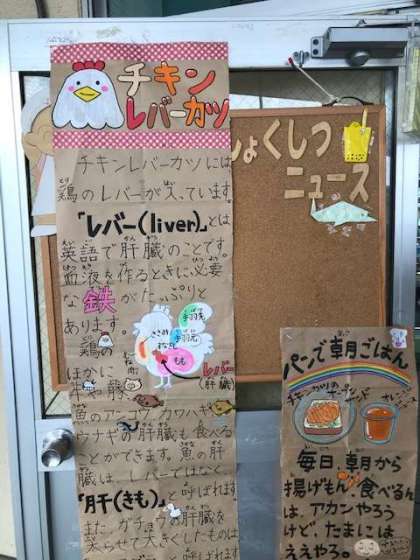 チキン
レバーカツ
チキンレバーカツには
鶏のレバーが入っています。
「レバー(liver)」とは
英語で肝臓のことです。
血液を作るときに必要
な鉄がたっぷりと
あります。
鶏の
ほかに
牛や豚、
魚のアンコウ、カワハギ、
ウナギの肝臓も食べる
ことができます。魚の肝
臓は、レバーではなく
「肝(きも)」と呼ばれます。
また、ガチョウの肝臓を
太らせて大きくしたものは
手羽先
手羽元
ささみ
むね
もも
レバー
(肝臓)
しょくしつ
ニュース
パンで朝ごはん
毎日、朝から
揚げもん食べるん
は、アカンやろう
けど、たまには
ええやろ